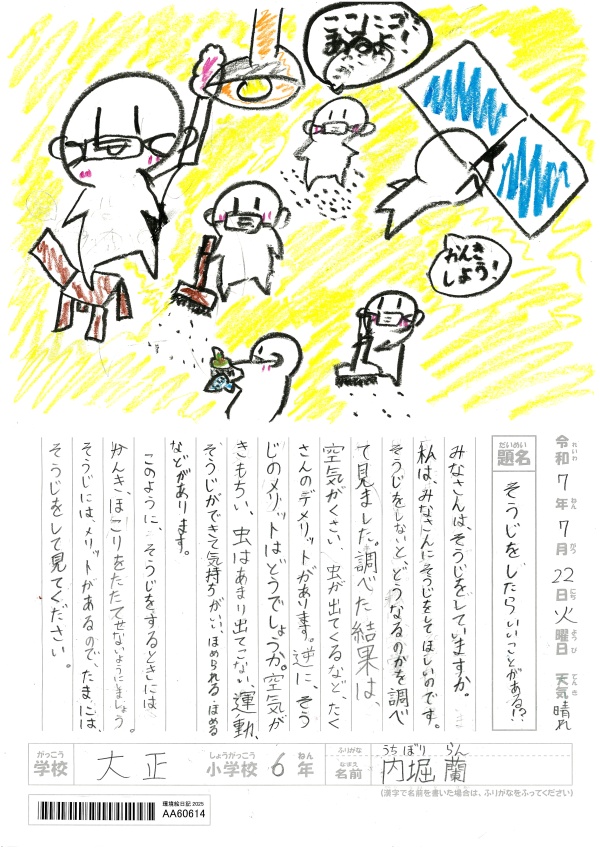 ここにゴミ
あるよ!
かんき
しよう!
令和7年7月22日火曜日 天気晴れ
れいわ ねん がつ にち ようび てんき
だいめい
題名
そうじをしたらいいことがある!?
みなさんは、そうじをしていますか。
私は、みなさんにそうじをしてほしいのです。
そうじをしないとどうなるのかを調べ
て見ました。調べた結果は、
空気がくさい、虫が出てくるなど、たく
さんのデメリットがあります。逆に、そう
じのメリットはどうでしょうか。空気が
きもちい、虫はあまり出てこない、運動、
そうじができて気持ちがいい、ほめられる・ほめる
などがあります。
このように、そうじをするときには
かんき、ほこりをたたてせないようにしましょう
そうじには、メリットがあるので、たまには、
そうじをして見てください。
がっこう しょうがっこう ねん
学校 大正 小学校 6年
ふりがな うちぼり らん
なまえ
名前 内堀 蘭
(漢字で名前を書いた場合は、ふりがなをふってください)
環境絵日記2025
AA60614